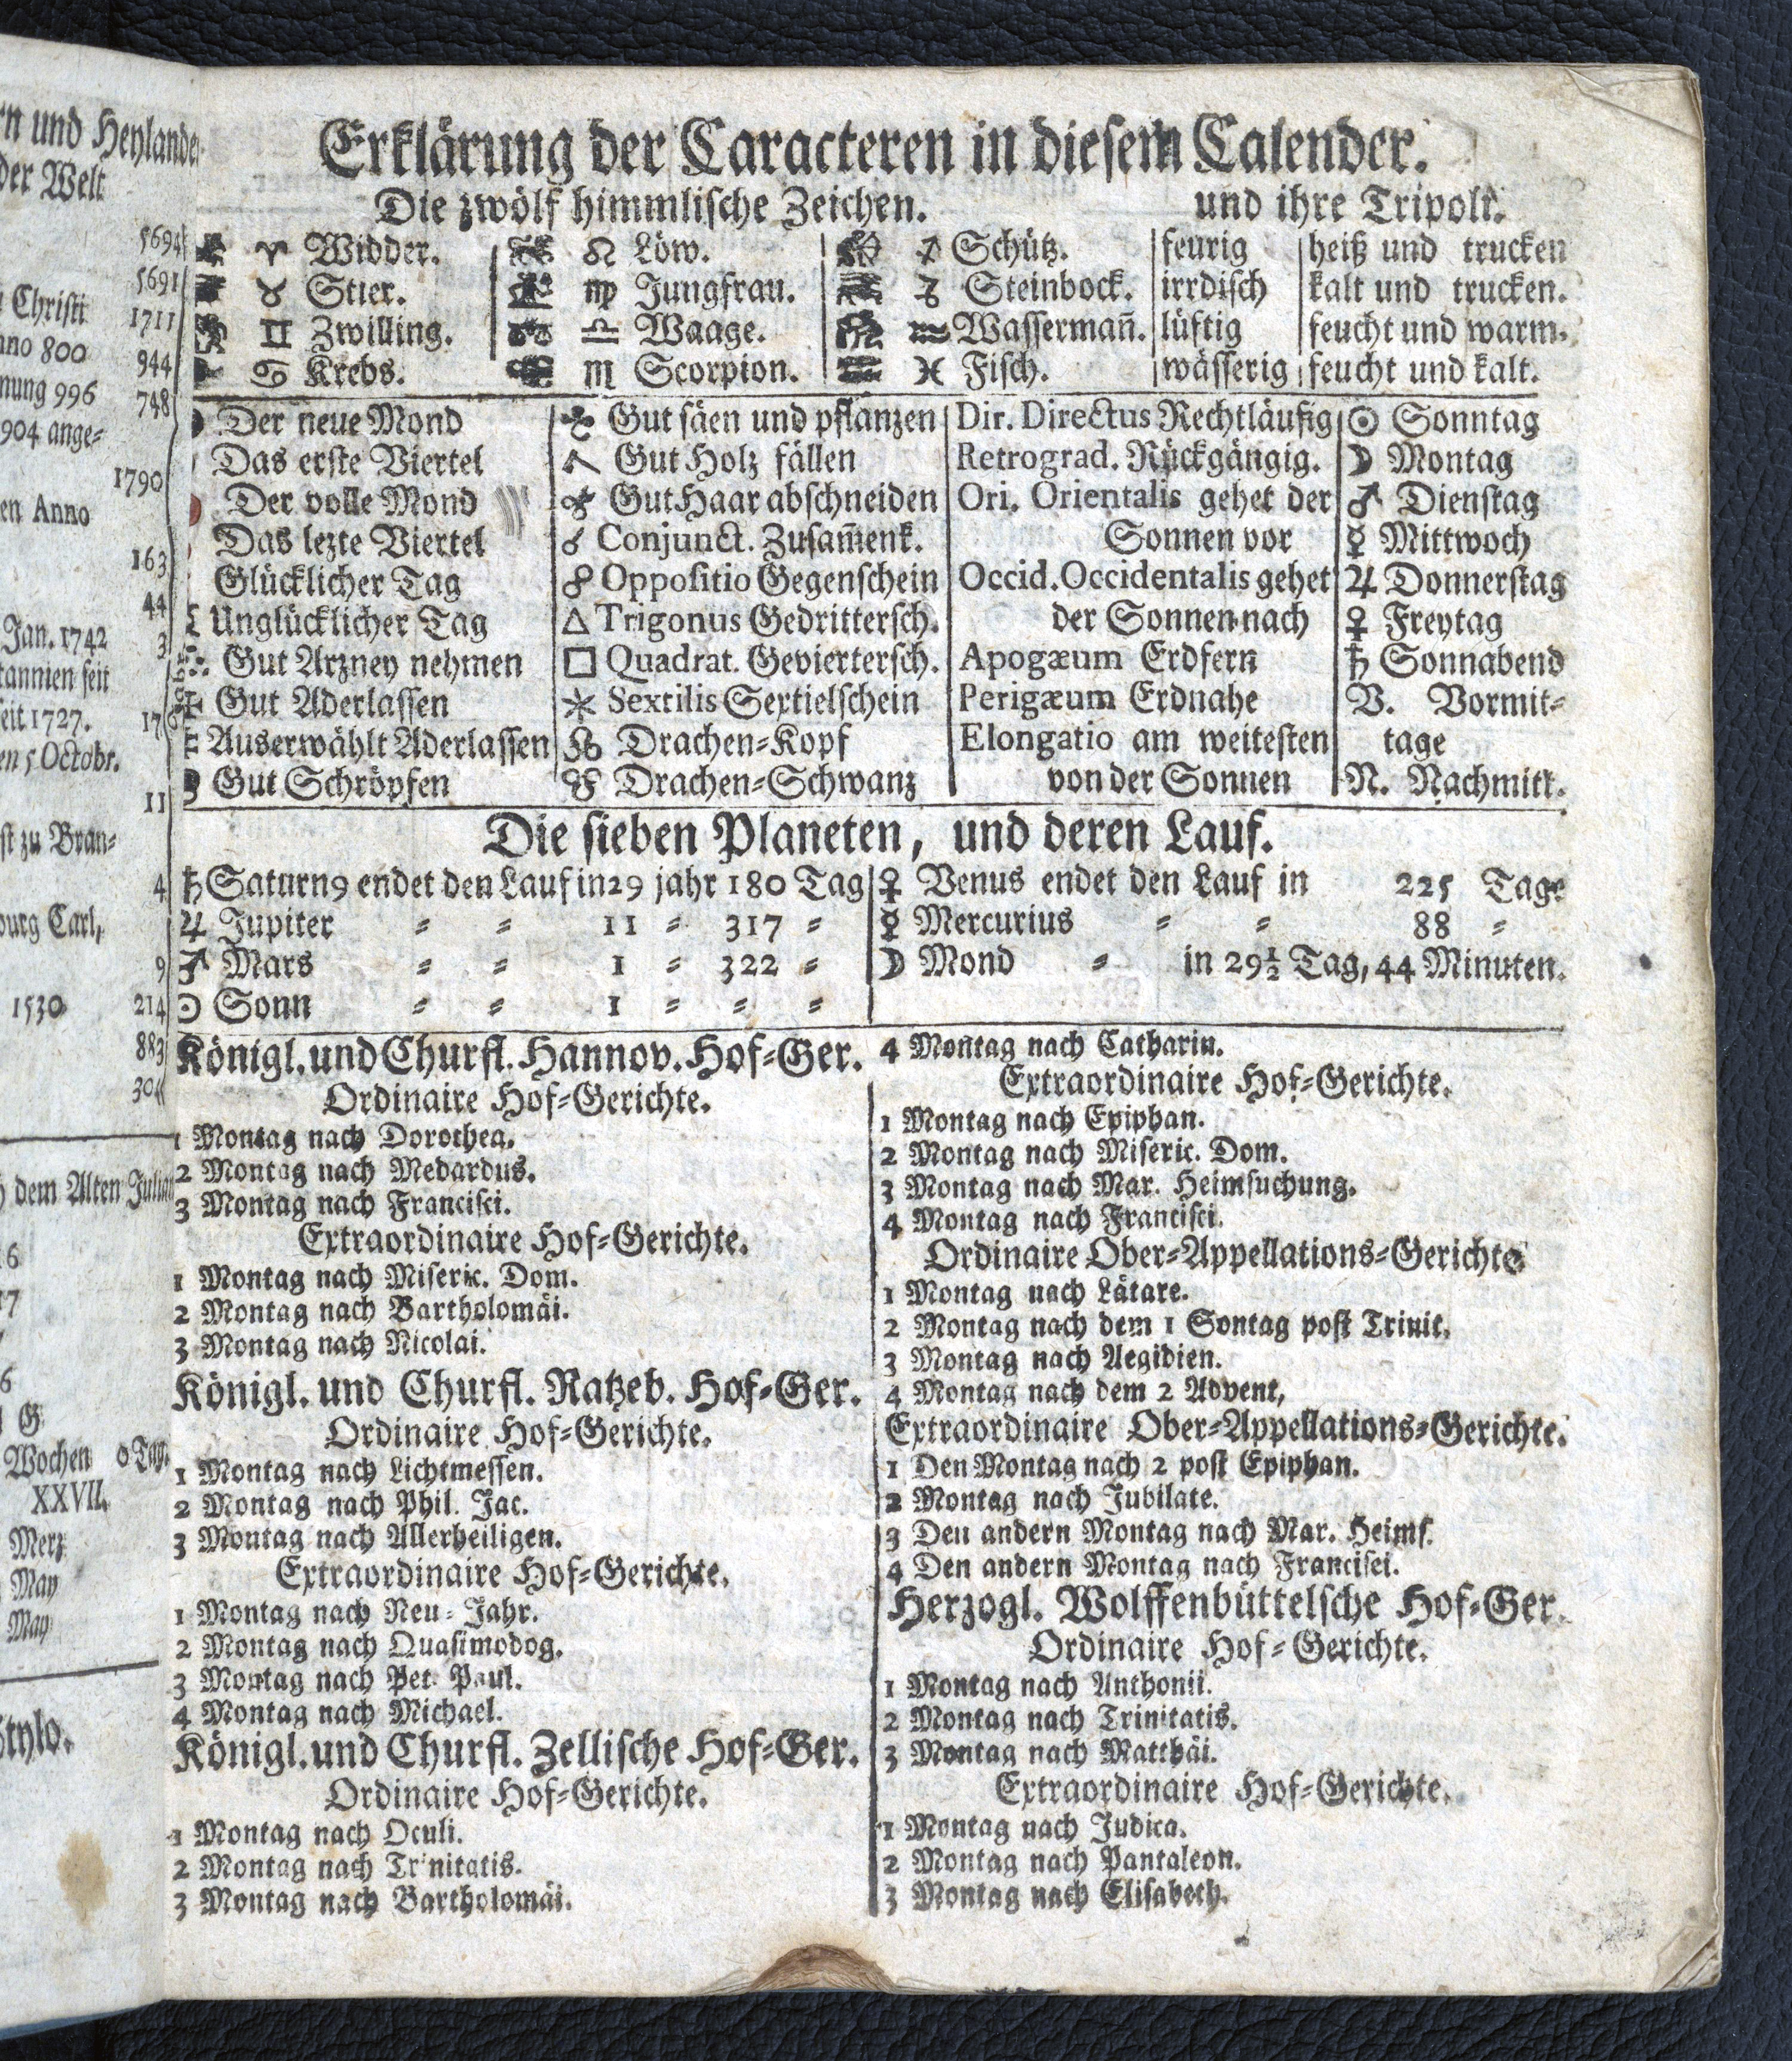 rn und Heylande
der Welt
5694
5691
Christi 1711
nno 800
944
nung 996
748
904 ange=
1790
en Anno
163
44
Jan. 1742 3
tannien seit
seit 1727. 176
en 5 Octobr.
11
st zu Bran=
4
burg Carl,
9
1530 214
883
304
dem Alten Julian
6
17
6
G
Wochen 0 Tag.
XXVII.
Merz
May
May
Stylo.
Erklärung der Caracteren in diesem Calender.
Die zwölf himmlische Zeichen. und ihre Tripolt.
♈ Widder. ♌ Löw. ♐ Schütz. feurig heiß und trucken
♉ Stier. ♍ Jungfrau. ♑ Steinbock. irrdisch kalt und trucken.
♊ Zwilling. ♎ Waage. ♒ Wassermañ. lüftig feucht und warm.
♋ Krebs. ♏ Scorpion. ♓ Fisch. wässerig feucht und kalt.
Der neue Mond
Das erste Viertel
Der volle Mond
Das lezte Viertel
Glücklicher Tag
Unglücklicher Tag
Gut Arzney nehmen
Gut Aderlassen
Auserwählt Aderlassen
Gut Schröpfen
Gut säen und pflanzen
Gut Holz fällen
Gut Haar abschneiden
☌ Conjunct. Zusam̃enk.
☍ Oppositio Gegenschein
△ Trigonus Gedrittersch.
□ Quadrat. Geviertersch.
⚹ Sextilis Sextielschein
☊ Drachen=Kopf
☋ Drachen=Schwanz
Dir. Directus Rechtläufig
Retrograd. Rückgängig.
Ori. Orientalis gehet der
Sonnen vor
Occid. Occidentalis gehet
der Sonnen nach
Apogæum Erdfern
Perigæum Erdnahe
Elongatio am weitesten
von der Sonnen
☉ Sonntag
☽ Montag
♂ Dienstag
☿ Mittwoch
♃ Donnerstag
♀ Freytag
♄ Sonnabend
V. Vormit=
tage
N. Nachmitt.
Die sieben Planeten, und deren Lauf.
♄ Saturn9 endet den Lauf in 29 jahr 180 Tag
♃ Jupiter = = 11 = 317 =
♂ Mars = = 1 = 322 =
☉ Sonn = = 1 = = =
♀ Venus endet den Lauf in 225 Tage
☿ Mercurius = = 88 =
☽ Mond = in 29½ Tag, 44 Minuten.
Königl. und Churfl. Hannov. Hof=Ger.
Ordinaire Hof=Gerichte.
1 Montag nach Dorothea.
2 Montag nach Medardus.
3 Montag nach Francisci.
Extraordinaire Hof=Gerichte.
1 Montag nach Miseric. Dom.
2 Montag nach Bartholomäi.
3 Montag nach Nicolai.
Königl. und Churfl. Ratzeb. Hof=Ger.
Ordinaire Hof=Gerichte.
1 Montag nach Lichtmessen.
2 Montag nach Phil. Jac.
3 Montag nach Allerheiligen.
Extraordinaire Hof=Gerichte.
1 Montag nach Neu=Jahr.
2 Montag nach Quasimodog.
3 Montag nach Pet. Paul.
4 Montag nach Michael.
Königl. und Churfl. Zellische Hof=Ger.
Ordinaire Hof=Gerichte.
1 Montag nach Oculi.
2 Montag nach Trinitatis.
3 Montag nach Bartholomäi.
4 Montag nach Catharin.
Extraordinaire Hof=Gerichte.
1 Montag nach Epiphan.
2 Montag nach Miseric. Dom.
3 Montag nach Mar. Heimsuchung.
4 Montag nach Francisci.
Ordinaire Ober=Appellations=Gerichte
1 Montag nach Lätare.
2 Montag nach dem 1 Sontag post Trinit.
3 Montag nach Aegidien.
4 Montag nach dem 2 Advent,
Extraordinaire Ober=Appellations=Gerichte.
1 Den Montag nach 2 post Epiphan.
2 Montag nach Jubilate.
3 Den andern Montag nach Mar. Heims.
4 Den andern Montag nach Francisci.
Herzogl. Wolffenbüttelsche Hof=Ger.
Ordinaire Hof=Gerichte.
1 Montag nach Anthonii.
2 Montag nach Trinitatis.
3 Montag nach Matthäi.
Extraordinaire Hof=Gerichte.
1 Montag nach Judica.
2 Montag nach Pantaleon.
3 Montag nach Elisabeth.